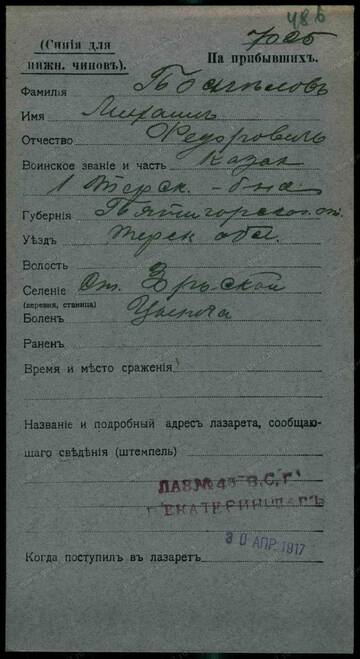 486
7025
(Синія для
нижн. чиновъ).
На прибывшихъ.
Фамилія
Имя Михаилъ
Отчество Федоровичъ
Воинское званіе и часть Казак
1 Терск.
Губернія Пятигорскаго от.
Уѣздъ Терск обл.
Волость
Селеніе Ст.
(деревня, станица)
Боленъ Цынга
Раненъ
Время и мѣсто сраженія
Названіе и подробный адресъ лазарета, сообщаю-
щаго свѣдѣнія (штемпель)
ЛАЗ № 45 В.С.Г.
г. ЕКАТЕРИНОДАРЪ
30 АПР. 1917
Когда поступилъ въ лазаретъ